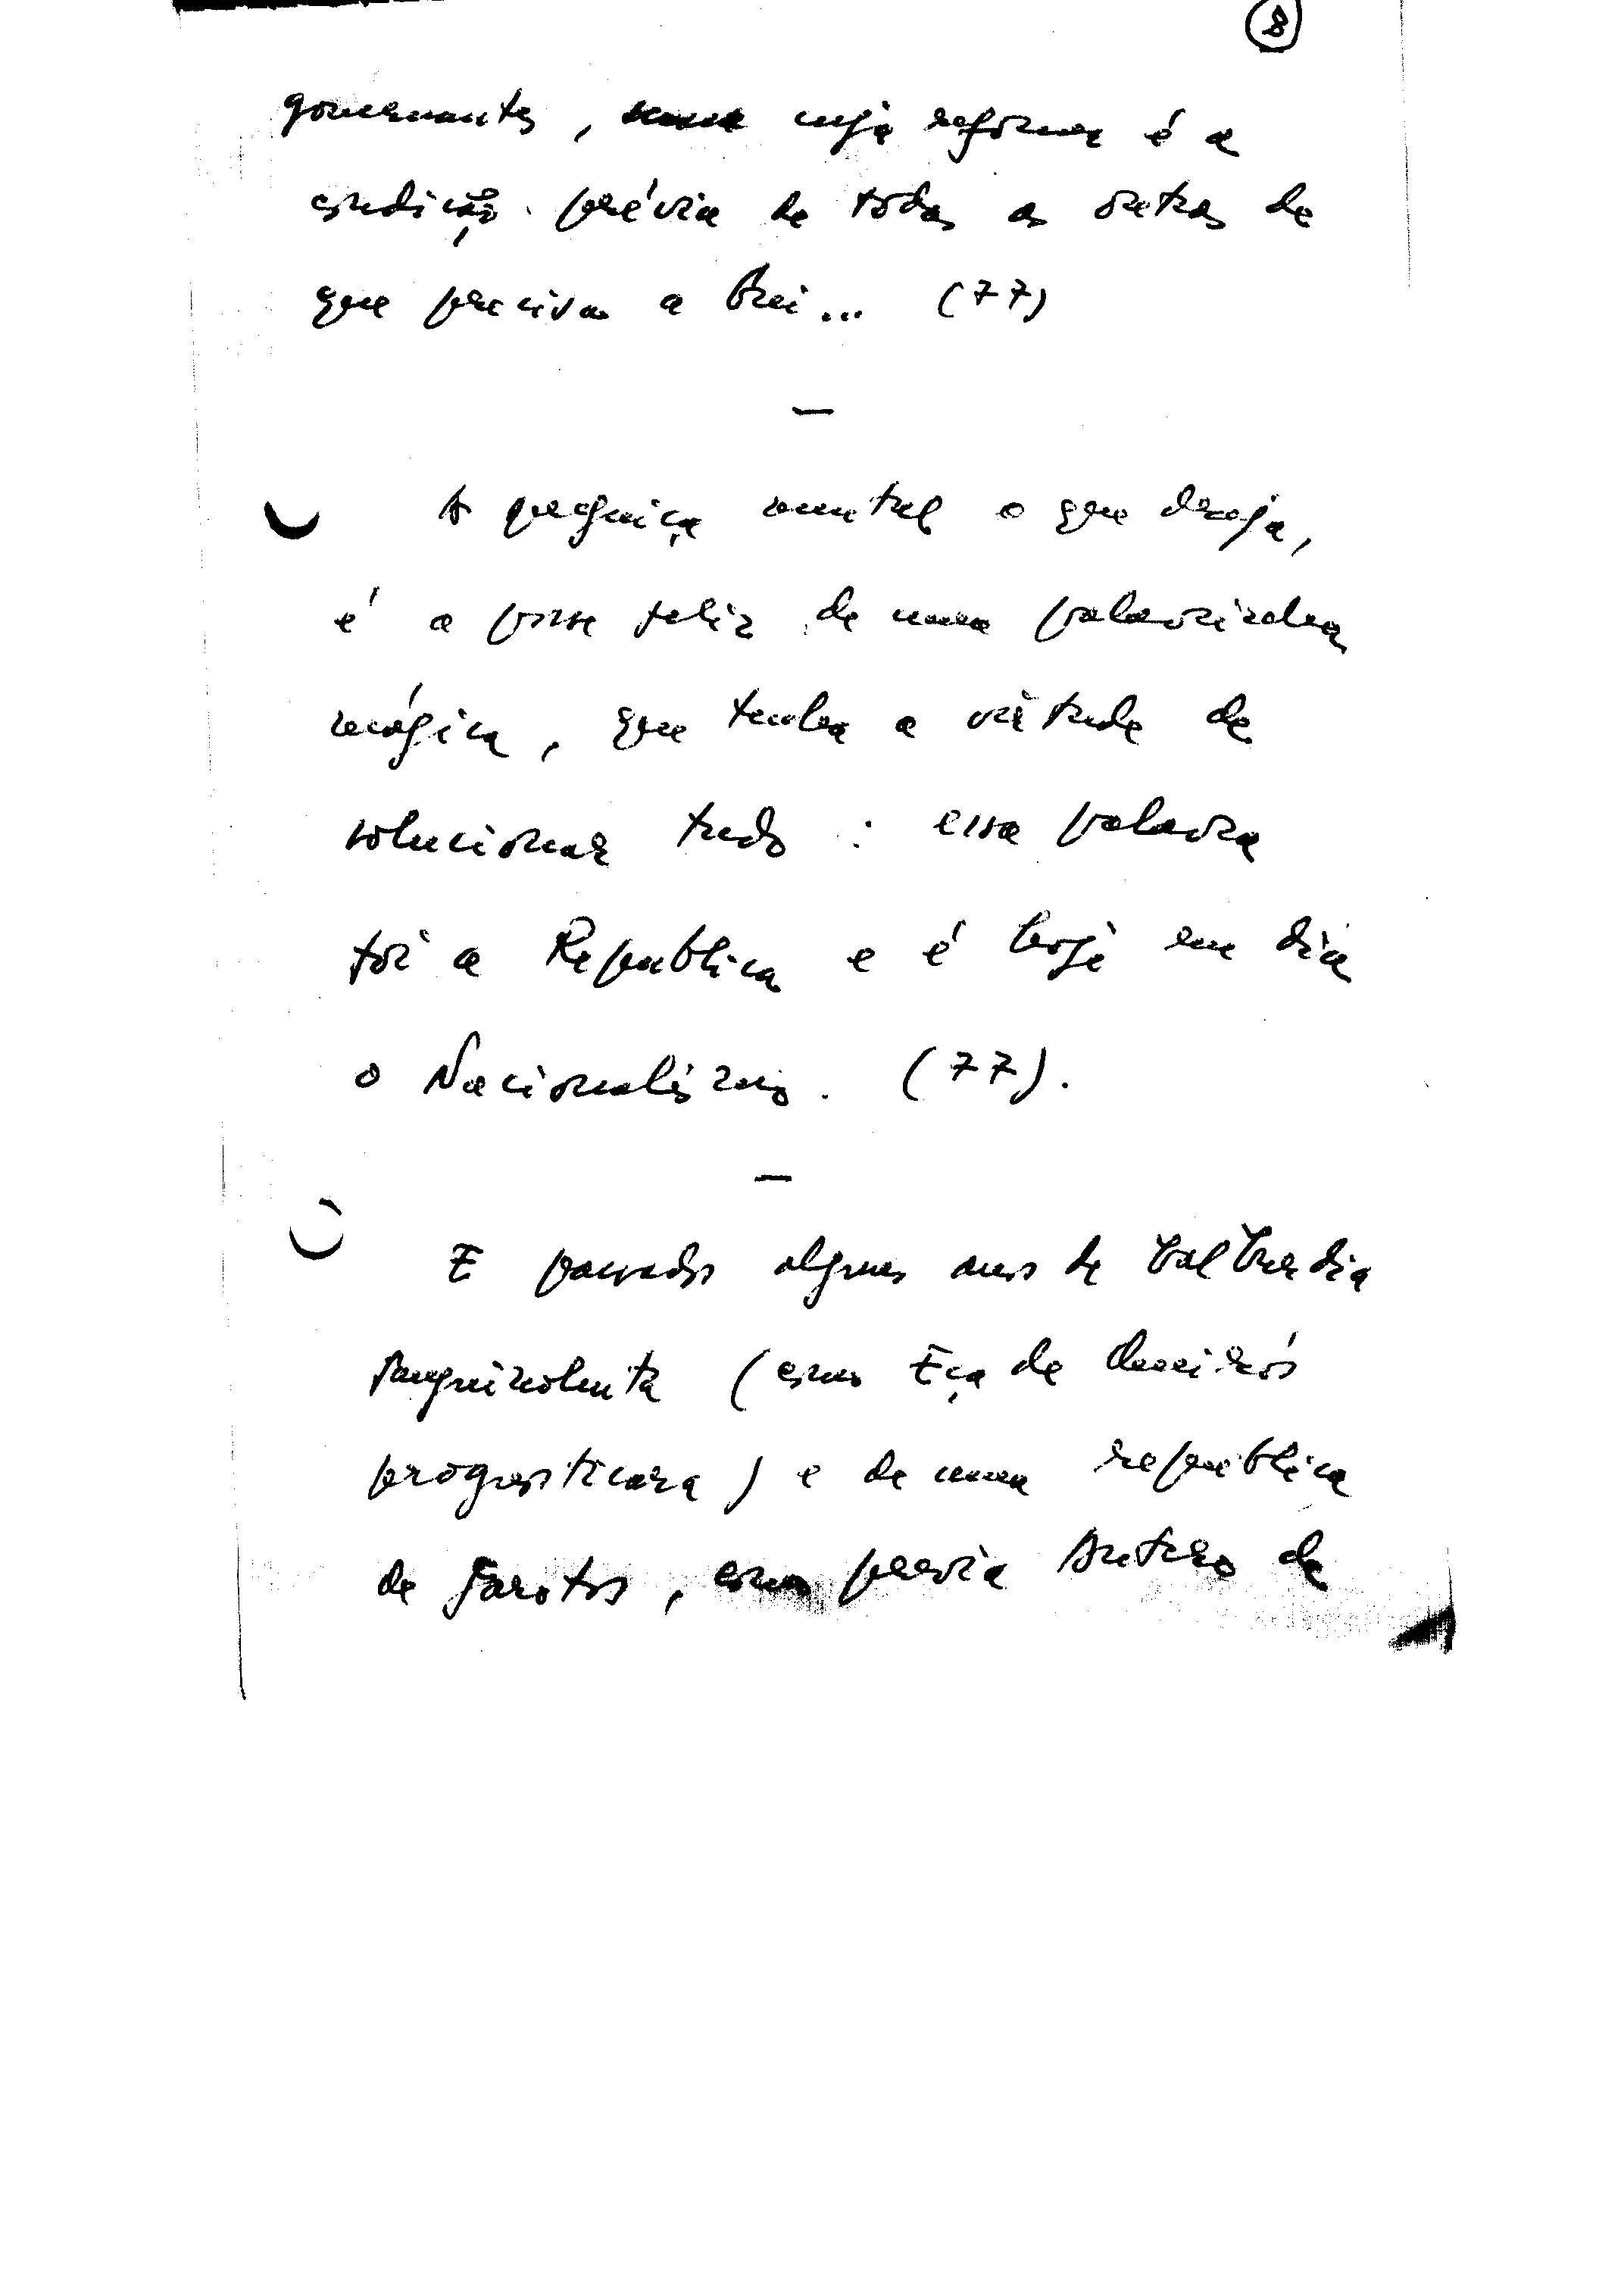 8
governantes, cuja reforma é a
condição prévia de todas as outras de
que precisa a Grei... (77)
—
A preguiça mental o que deseja,
é a posse feliz de uma palavrinha
mágica, que tenha a virtude de
solucionar tudo : essa palavra
foi a Republica e é hoje em dia
o Nacionalismo. (77).
—
E passados alguns anos de balbúrdia
sanguinolenta (como Eça de Queirós
prognosticara) e de uma republica
de Garotos, como previa Antero de